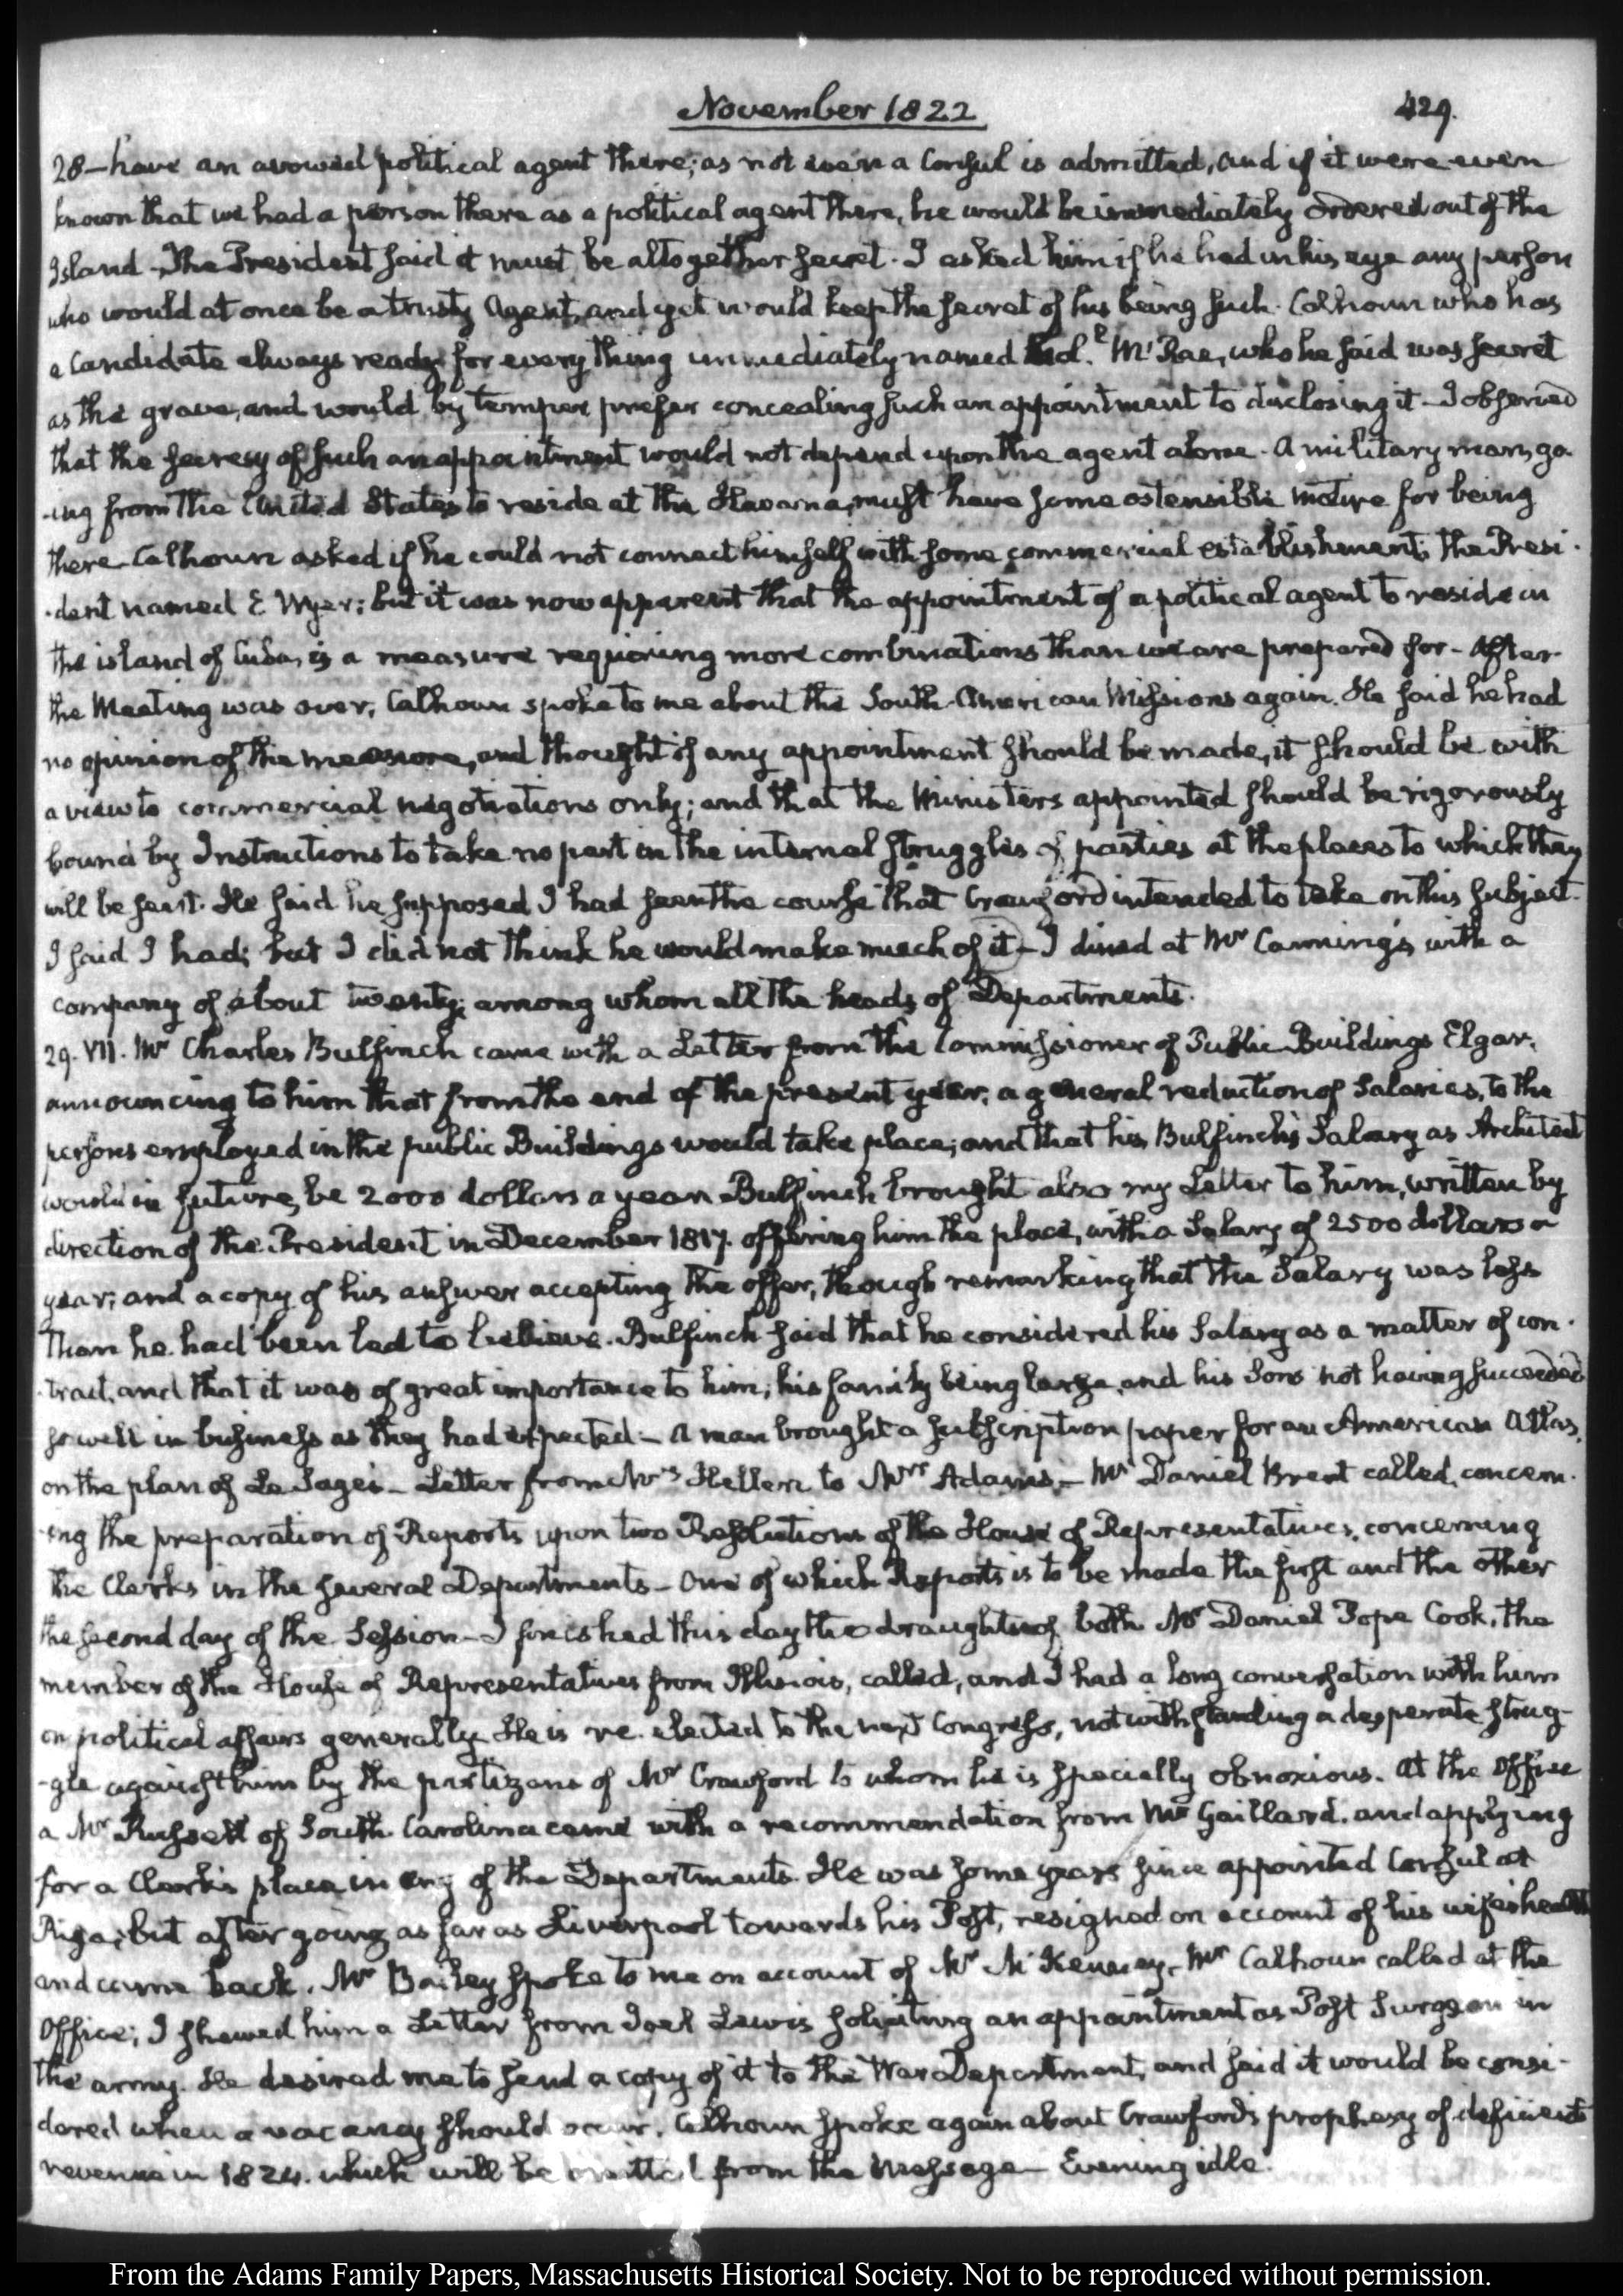 November 1822
429.
28—have an avowed political agent there; as not even a Consul is admitted, and if it were even
known that we had a person there as a political agent there, he would be immediately ordered out of the
Island. The President said it must be altogether secret. I asked him if he had in his eye any person
who would at once be a trusty Agent, and yet would keep the secret of his being such. Calhoun who has
a Candidate always ready for every thing immediately named Col. McRae, who he said was secret
as the grave, and would by temper prefer concealing such an appointment to disclosing it—I observed
that the secresy of such an appointment would not depend upon the agent alone. A military man, go-
-ing from the United States to reside at the Havanna, must have some ostensible motive for being
there. Calhoun asked if he could not connect himself with some commercial establishment; the Presi-
-dent named E Wyer; but it was now apparent that the appointment of a political agent to reside in
the island of Cuba, is a measure requiring more combinations than we are prepared for—After
the Meeting was over, Calhoun spoke to me about the South-American Missions again. He said he had
no opinion of the measure, and thought if any appointment should be made, it should be with
a view to commercial negotiations only; and that the Ministers appointed should be rigorously
bound by Instructions to take no part in the internal struggles of parties at the places to which they
will be sent. He said he supposed I had seen the course that Crawford intended to take on this subject.
I said I had; but I did not think he would make much of it—I dined at Mr Canning's with a
company of about twenty; among whom all the heads of Departments.
29. VII. Mr Charles Bulfinch came with a Letter from the Commissioner of Public Buildings Elgar,
announcing to him that from the end of the present year, a general reduction of Salaries, to the
persons employed in the public Buildings would take place; and that his Bulfinch's Salary as Architect
would in future, be 2000 dollars a year. Bulfinch brought also my Letter to him, written by
direction of the President in December 1817. offering him the place, with a Salary of 2500 dollars a
year; and a copy of his answer accepting the offer, though remarking that the Salary was less
than he had been led to believe. Bulfinch said that he considered his Salary as a matter of con-
-tract, and that it was of great importance to him; his family being large, and his Sons not having succeeded
so well in business as they had expected—A man brought a subscription paper for an American Atlas,
on the plan of Le Sage's—Letter from Mrs Hellen to Mrs Adams—Mr Daniel Brent called, concern-
-ing the preparation of Reports upon two Resolutions of the House of Representatives, concerning
the Clerks in the several Departments—One of which Reports is to be made the first and the other
the second day of the Session—I finished this day the draughting of both. Mr Daniel Pope Cook, the
member of the House of Representatives from Illinois, called, and I had a long conversation with him
on political affairs generally. He is re-elected to the next Congress, notwithstanding a desperate strug-
-gle against him by the partizans of Mr Crawford to whom he is specially obnoxious. At the Office
a Mr Russell of South-Carolina came with a recommendation from Mr Gaillard. and applying
for a Clerk's place in any of the Departments. He was some years since appointed Consul at
Riga; but after going as far as Liverpool towards his Post, resigned on account of his wife's health
and came back. Mr Bailey spoke to me on account of Mr McKenney. Mr Calhoun called at the
Office; I shewed him a Letter from Joel Lewis soliciting an appointment as Post Surgeon in
the army. He desired me to send a copy of it to the War Department, and said it would be consi-
dered when a vacancy should occur. Calhoun spoke again about Crawford's prophesy of deficient
revenue in 1824. which will be omitted from the Message—Evening idle.
From the Adams Family Papers, Massachusetts Historical Society. Not to be reproduced without permission.